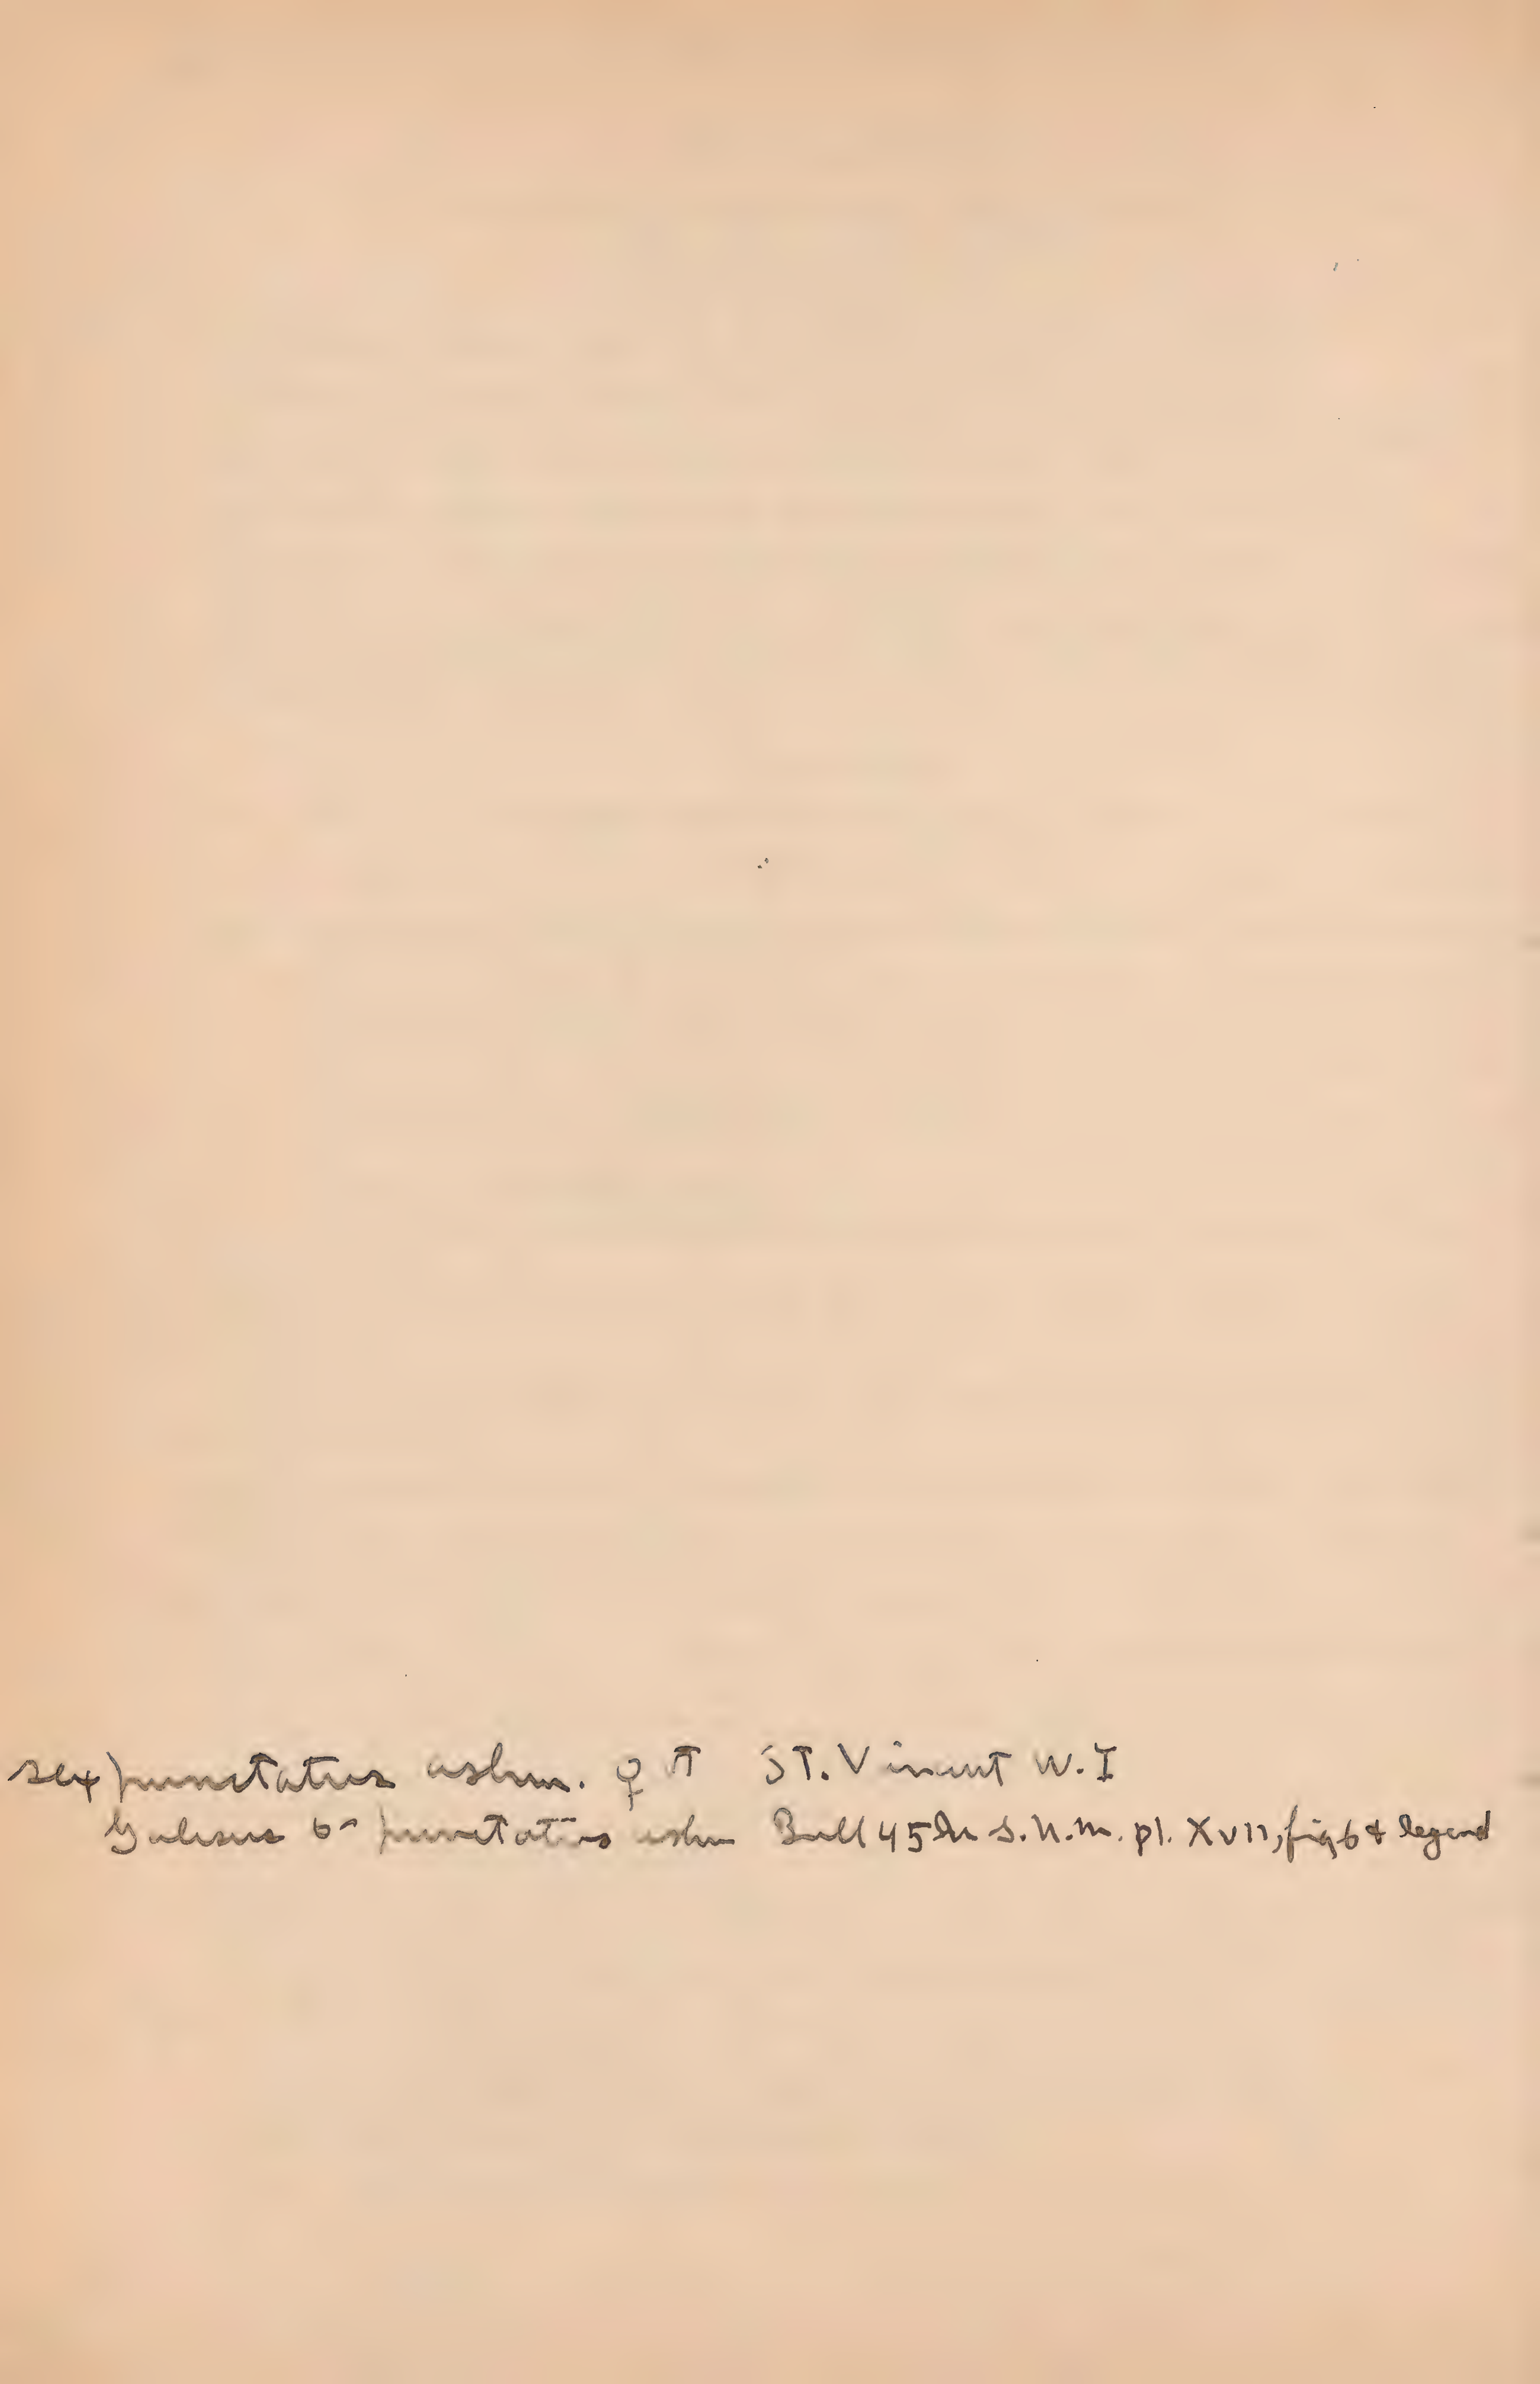 sexpunctatus ashm. ♀ ST. Vincent W. I
Galesus 6-punctatus ashm Bull 45 U. S. N. M. pl. XVII, fig 6 & legend